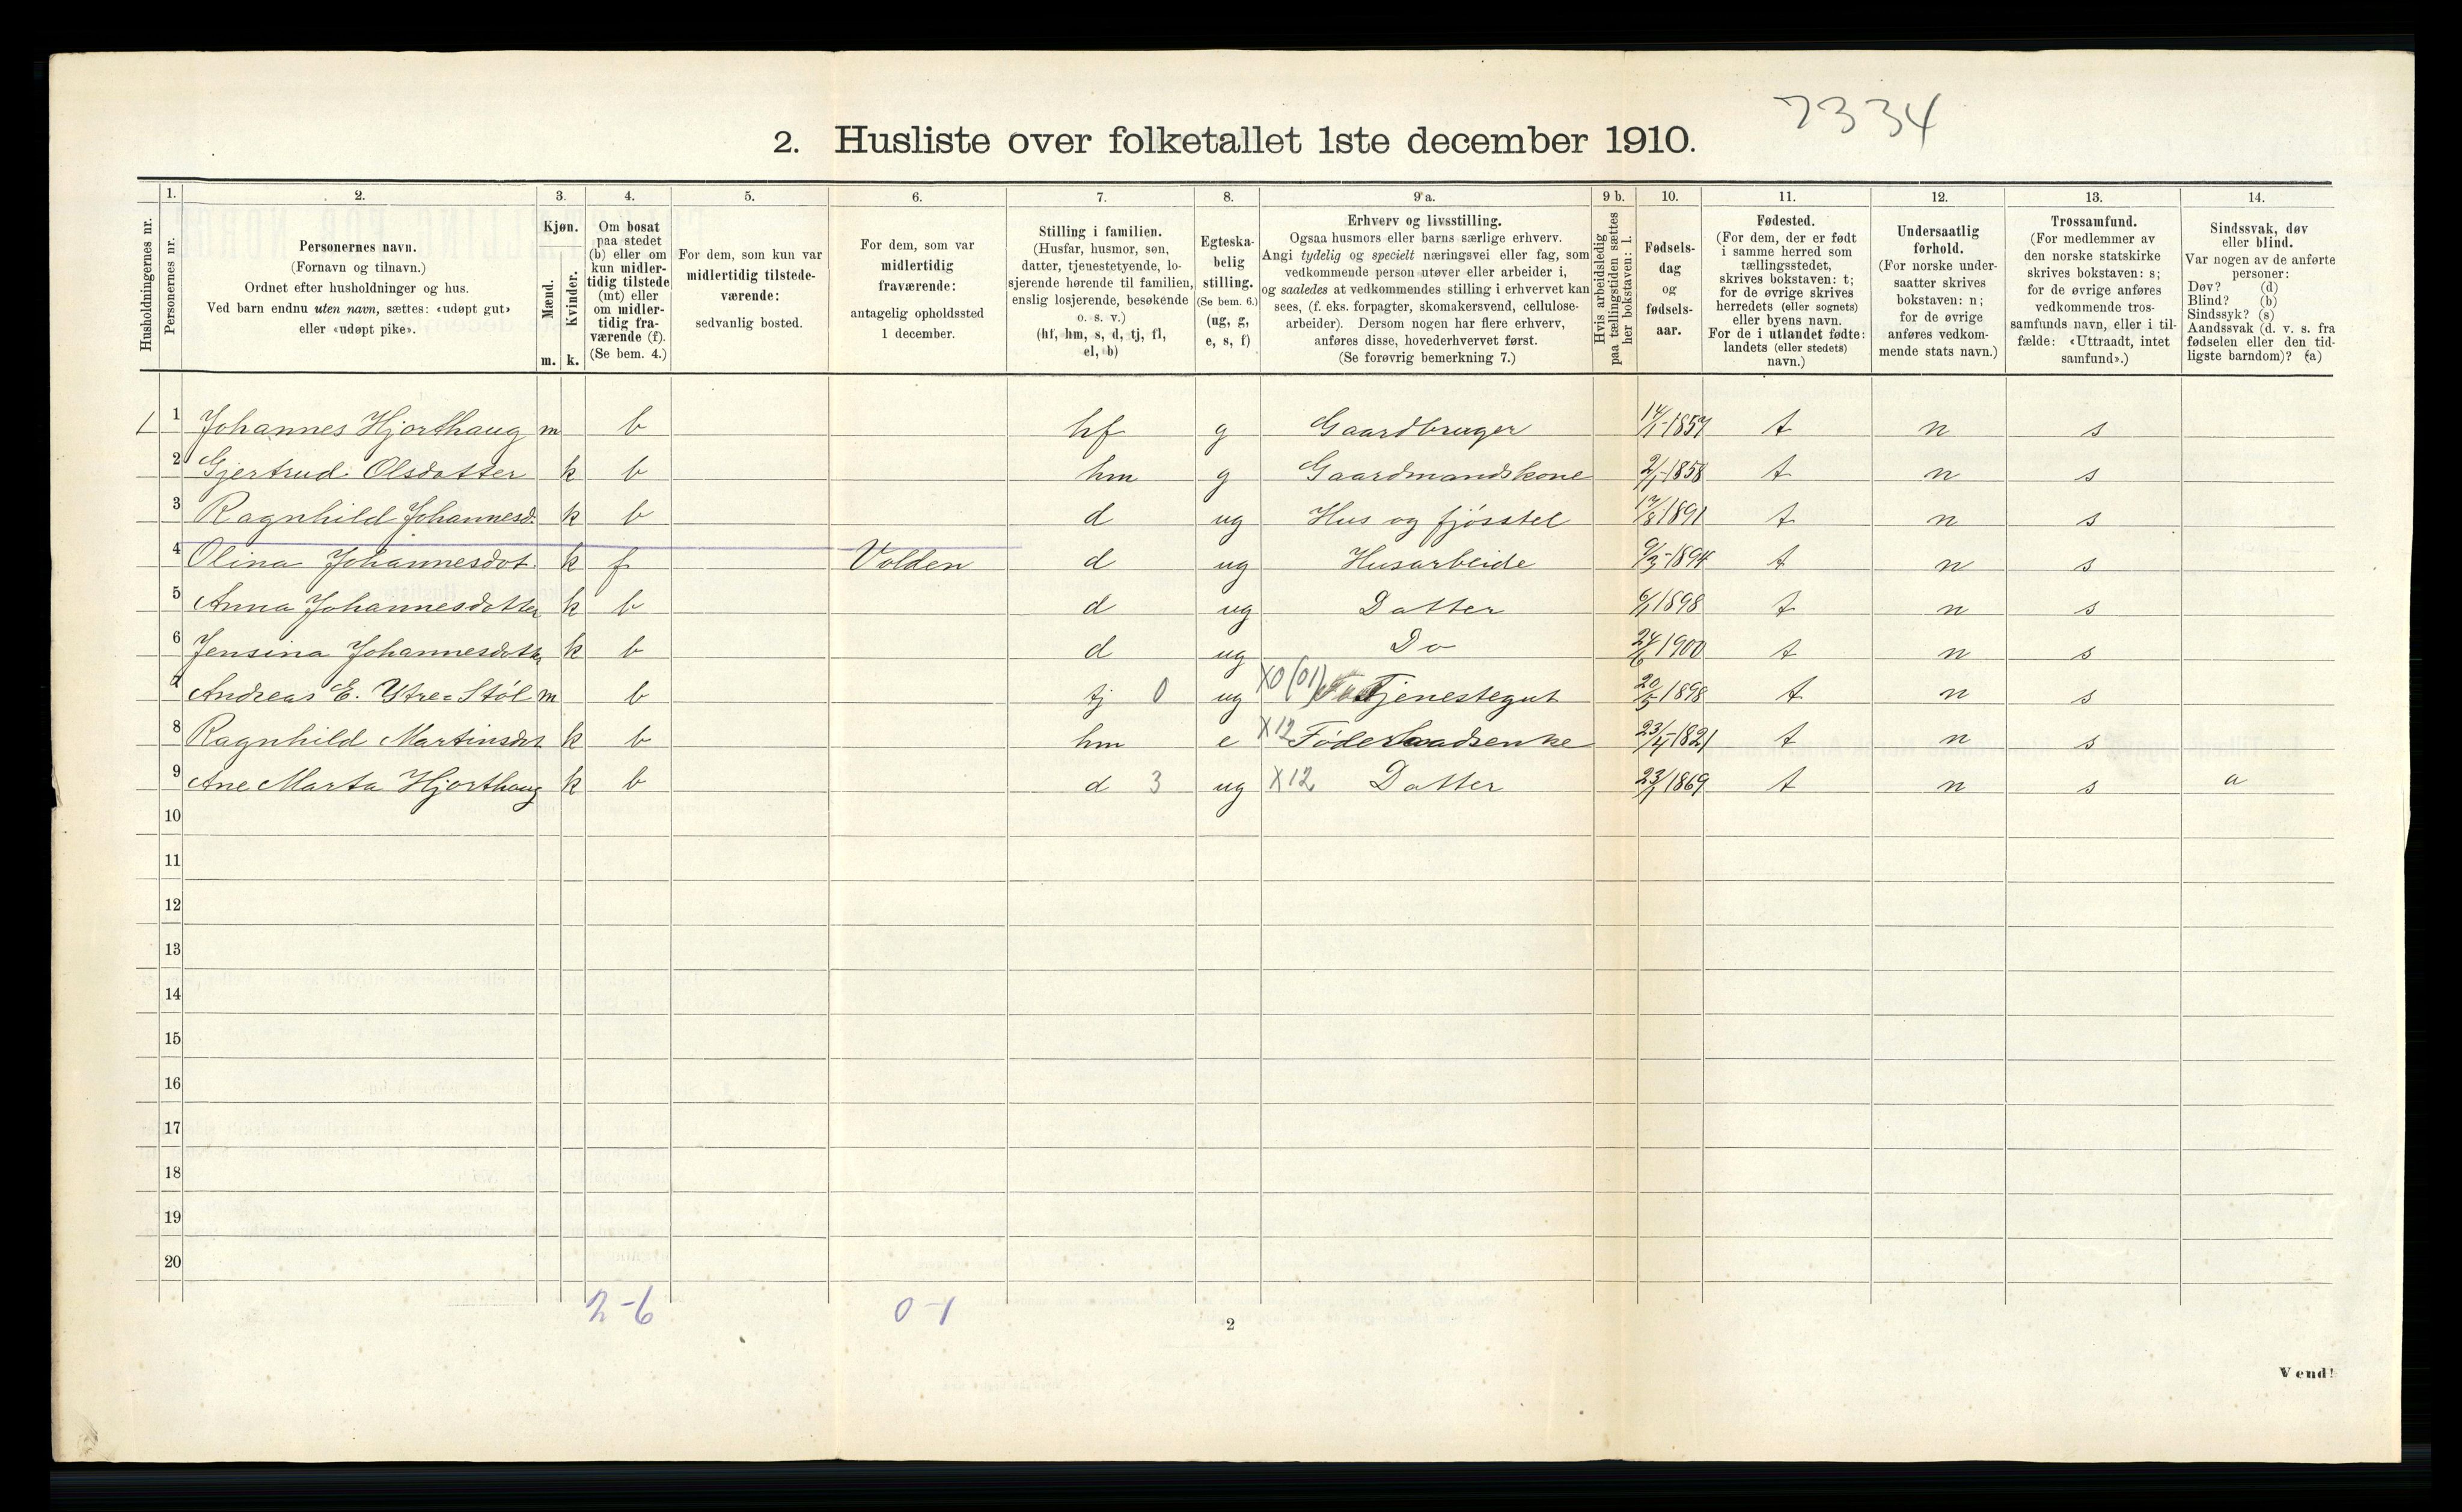 7334
2. Husliste over folketallet 1ste december 1910.
Husholdningernes nr.
1. Personernes nr.
2. Personernes navn. (Fornavn og tilnavn.) Ordnet efter husholdninger og hus. Ved barn endnu uten navn, sættes: «udøpt gut» eller «udøpt pike».
3. Kjøn. Mænd. m. Kvinder. k.
4. Om bosat paa stedet (b) eller om kun midlertidig tilstede (mt) eller om midlertidig fraværende (f). (Se bem. 4.)
5. For dem, som kun var midlertidig tilstedeværende: sedvanlig bosted.
6. For dem, som var midlertidig fraværende: antagelig opholdssted 1 december.
7. Stilling i familien. (Husfar, husmor, søn, datter, tjenestetyende, losjerende hørende til familien, enslig losjerende, besøkende o. s. v.) (hf, hm, s, d, tj, fl, el, b)
8. Egteskabelig stilling. (Se bem. 6.) (ug, g, e, s, f)
9 a. Erhverv og livsstilling. Ogsaa husmors eller barns særlige erhverv. Angi tydelig og specielt næringsvei eller fag, som vedkommende person utøver eller arbeider i, og saaledes at vedkommendes stilling i erhvervet kan sees, (f. eks. forpagter, skomakersvend, cellulosearbeider). Dersom nogen har flere erhverv, anføres disse, hovederhvervet først. (Se forøvrig bemerkning 7.)
9 b. Hvis arbeidsledig paa tællingstiden sættes her bokstaven: l.
10. Fødselsdag og fødselsaar.
11. Fødested. (For dem, der er født i samme herred som tællingsstedet, skrives bokstaven: t; for de øvrige skrives herredets (eller sognets) eller byens navn. For de i utlandet fødte: landets (eller stedets) navn.)
12. Undersaatlig forhold. (For norske undersaatter skrives bokstaven: n; for de øvrige anføres vedkommende stats navn.)
13. Trossamfund. (For medlemmer av den norske statskirke skrives bokstaven: s; for de øvrige anføres vedkommende trossamfunds navn, eller i tilfælde: «Uttraadt, intet samfund».)
14. Sindssvak, døv eller blind. Var nogen av de anførte personer: Døv? (d) Blind? (b) Sindssyk? (s) Aandssvak (d. v. s. fra fødselen eller den tidligste barndom)? (a)
1 1 Johannes Hjorthaug m b hf g Gaardbruger 14/1-1857 t n s
2 Gjertrud Olsdotter k b hm g Gaardmandskone 2/1-1858 t n s
3 Ragnhild Johannesd. k b d ug Hus og fjósstel 17/8 1891 t n s
4 Olina Johannesdot k f Volden d ug Husarbeide 9/3-1894 t n s
5 Anna Johannesdotter k b d ug Datter 6/1 1898 t n s
6 Jensina Johannesdott k b d ug Do 24/6 1900 t n s
7 Andreas E. Ytre-Stól m b tj 0 ug X0 (01) Tjenestegut 20/5 1898 t n s
8 Ragnhild Martinsdot k b hm e X12 Føderaadsenke 23/4-1821 t n s
9 Ane Marta Hjorthaug k b d 3 ug X12 Datter 23/1 1869 t n s a
10
11
12
13
14
15
16
17
18
19
20
2-6 0-1
2
Vend!